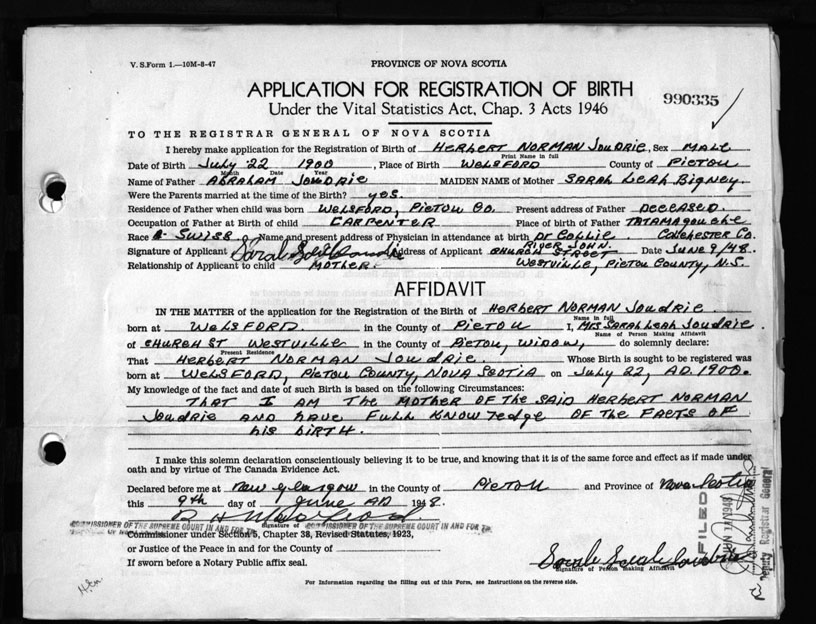 V. S. Form 1.—10M-8-47
PROVINCE OF NOVA SCOTIA
APPLICATION FOR REGISTRATION OF BIRTH
Under the Vital Statistics Act, Chap. 3 Acts 1946
990335
TO THE REGISTRAR GENERAL OF NOVA SCOTIA
I hereby make application for the Registration of Birth of HERBERT NORMAN JOUDRIE, Sex MALE
Print Name in full
Date of Birth July 22 1900, Place of Birth WELSFORD County of PICTOU
Month Date Year
Name of Father ABRAHAM JOUDRIE MAIDEN NAME of Mother SARAH LEAH BIGNEY.
Were the Parents married at the time of the Birth? yes.
Residence of Father when child was born WELSFORD, PICTOU CO. Present address of Father DECEASED.
Occupation of Father at Birth of Child CARPENTER Place of birth of Father TATAMAGOUCHE
COLCHESTER CO.
Race SWISS Name and present address of Physician in attendance at birth Dr COLLIE
RIVER JOHN.
Signature of Applicant Sarah Address of Applicant CHURCH STREET Date JUNE 9/48.
Relationship of Applicant to child MOTHER. WESTVILLE, PICTOU COUNTY, N.S.
AFFIDAVIT
IN THE MATTER of the application for the Registration of the Birth of HERBERT NORMAN JOUDRIE
Name in full
born at WELSFORD. in the County of PICTOU I, MRS SARAH LEAH JOUDRIE.
Name of Person Making Affidavit
of CHURCH ST WESTVILLE in the County of PICTOU, WIDOW, do solemnly declare:
Present Residence
That HERBERT NORMAN JOUDRIE. Whose Birth is sought to be registered was
born at WELSFORD, PICTOU COUNTY, NOVA SCOTIA on July 22, A.D. 1900.
My knowledge of the fact and date of such Birth is based on the following Circumstances:
THAT I AM THE MOTHER OF THE SAID HERBERT NORMAN
JOUDRIE AND HAVE FULL KNOWLEDGE OF THE FACTS OF
his BIRTH.
I make this solemn declaration conscientiously believing it to be true, and knowing that it is of the same force and effect as if made under
oath and by virtue of The Canada Evidence Act.
Declared before me at New Glasgow in the County of PICTOU and Province of Nova Scotia
this 9th day of June AD 1948.
Signature of
COMMISSIONER OF THE SUPREME COURT IN AND FOR
COMMISSIONER OF THE SUPREME COURT IN AND FOR
Commissioner under Section 5, Chapter 38, Revised Statutes, 1923,
or Justice of the Peace in and for the County of
If sworn before a Notary Public affix seal.
Sarah Joudrie
Signature of Person Making Affidavit
FILED
JUN 1948
Deputy Registrar General
For Information regarding the filling out of this Form, see Instructions on the reverse side.